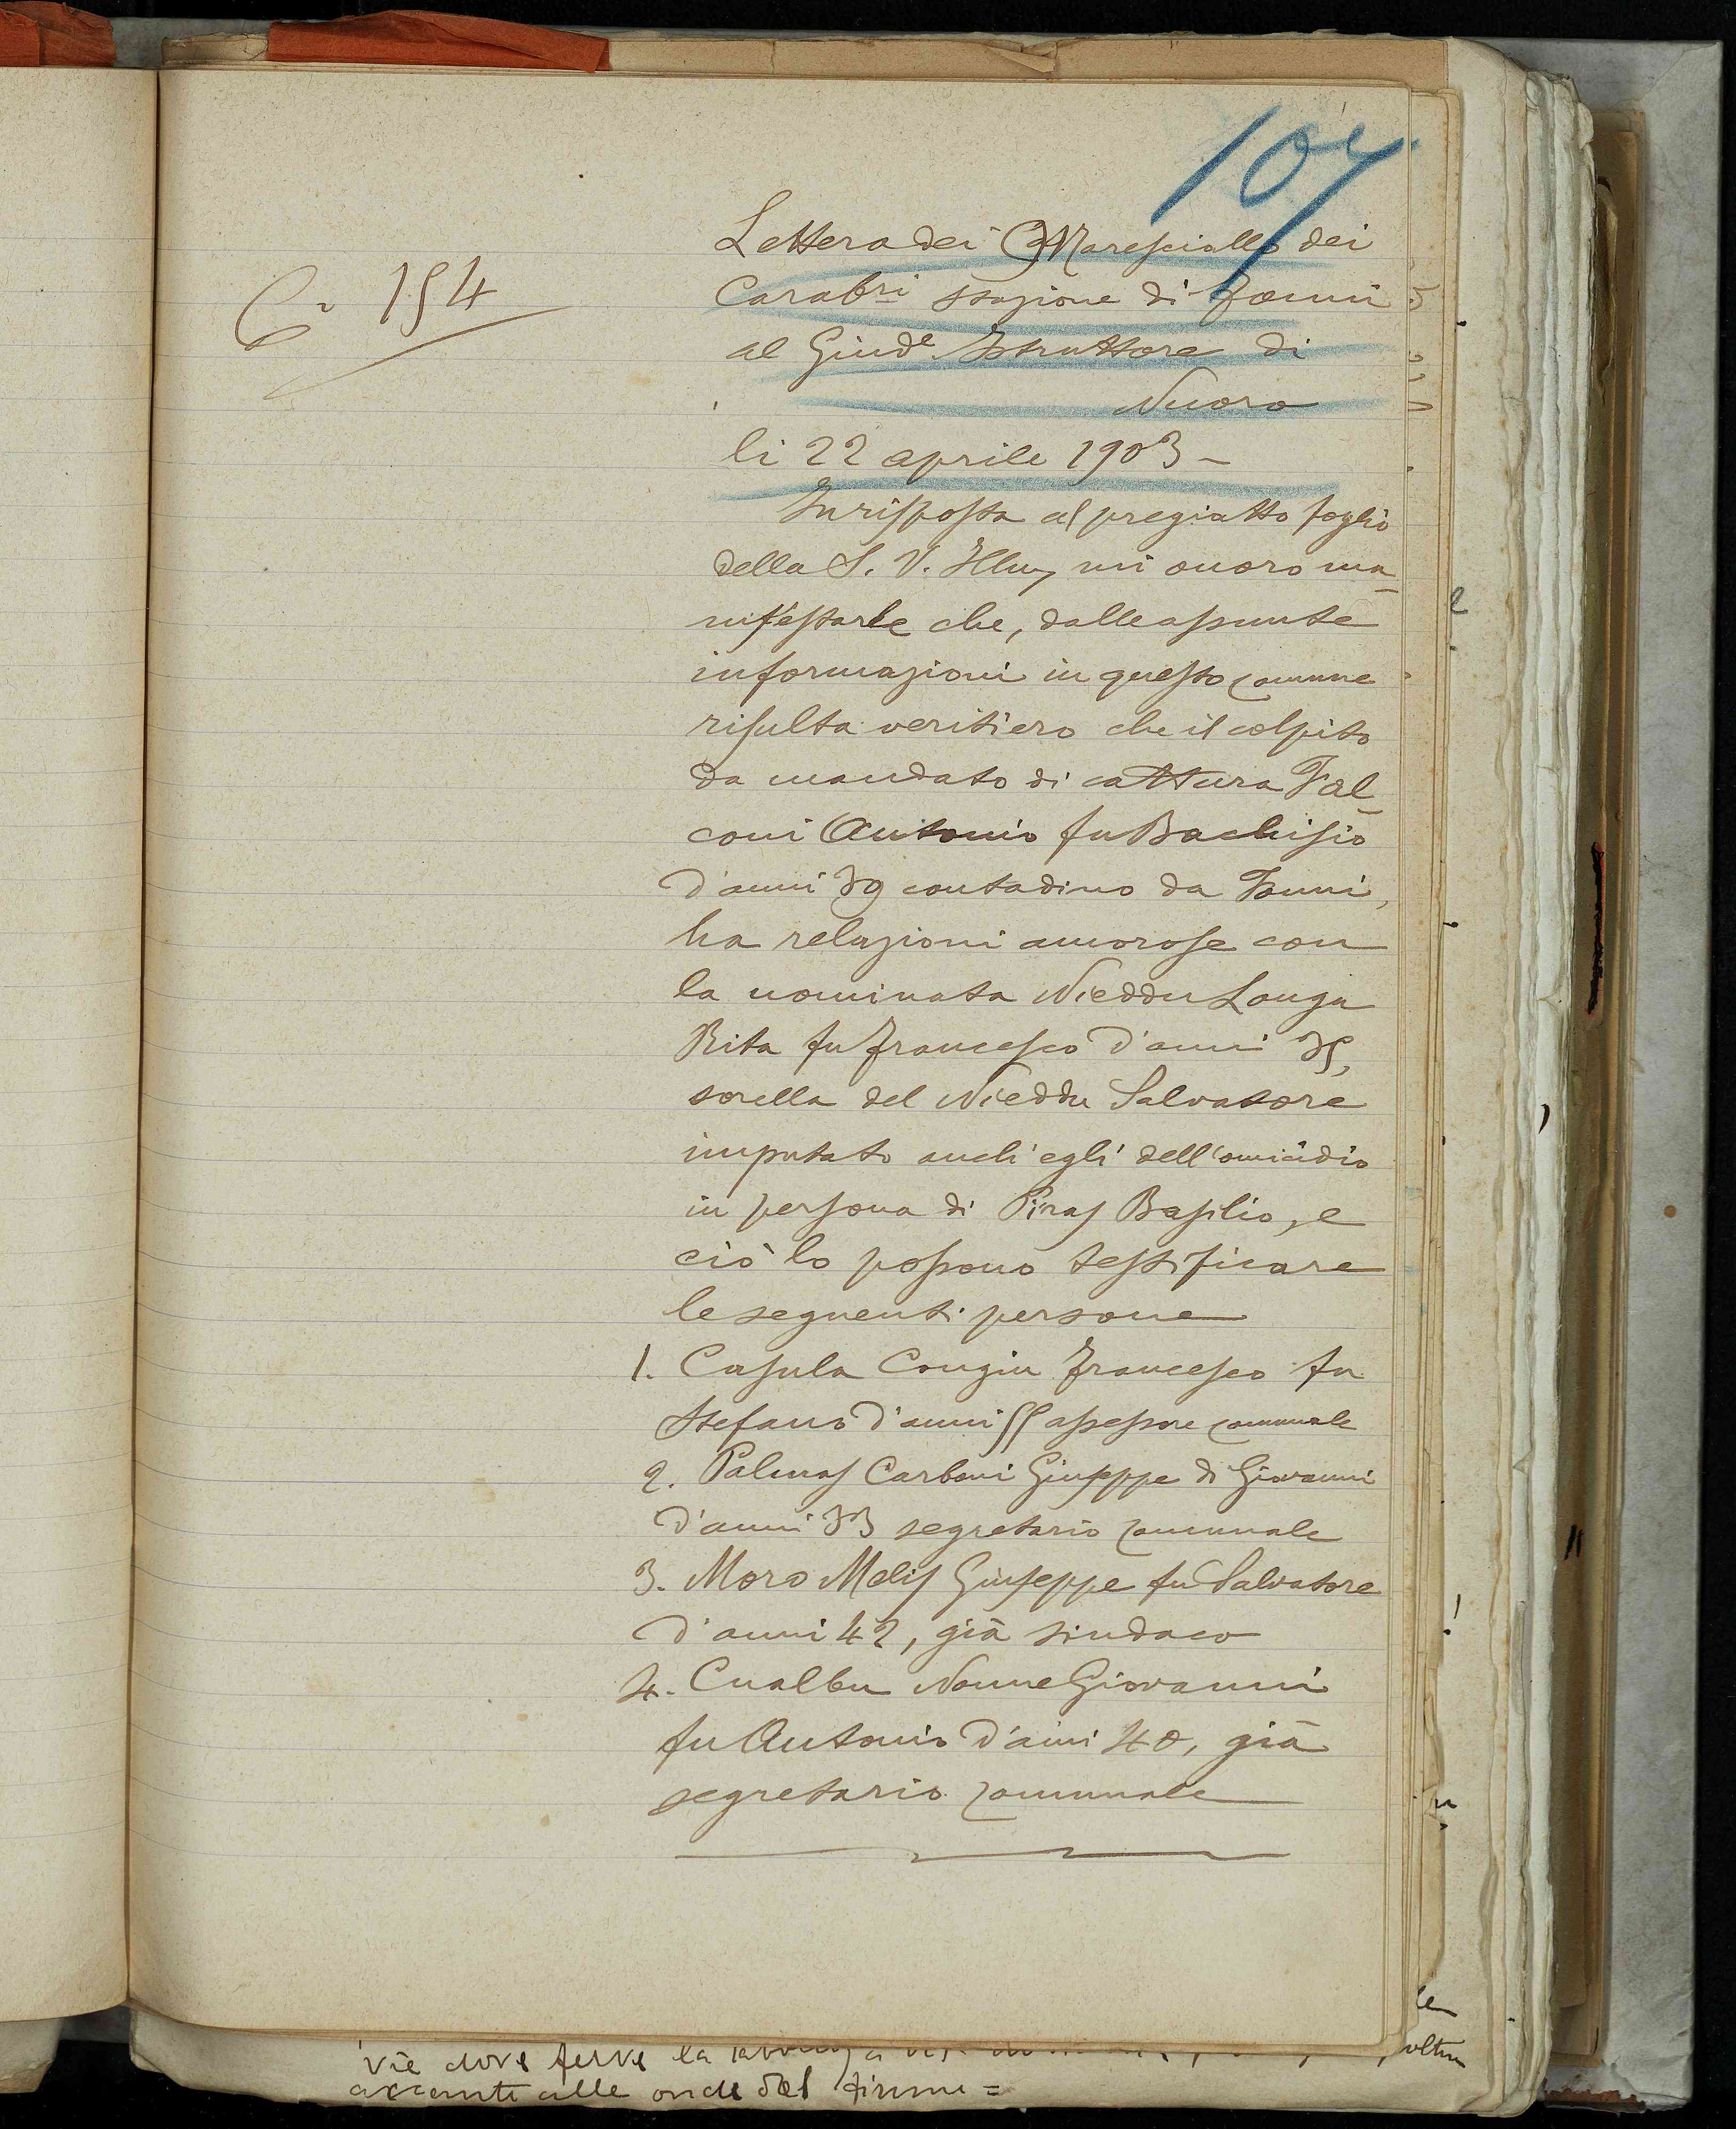 107
C. 154
Lettera dei Maresciallo dei
Carabri stazione di Fonni
al Giude Istruttore di
Nuoro
li 22 aprile 1903 -
In risposta al pregiatto foglio
della S. V. Illm, mi onoro ma
nifestarle che, dalle assunte
informazioni in questo comune
risulta veritiero che il colpito
da mandato di cattura Fal
coni Antonio fu Bachisio
d'anni 39 contadino da Fonni,
ha relazioni amorose con
la nominata Nieddu Longu
Rita fu Francesco d'anni 35,
sorella del Nieddu Salvatore
imputato anch'egli dell'omicidio
in persona di Piras Basilio, e
ciò lo possono testificare
le seguenti persone
1. Casula Congiu Francesco fu
Stefano d'anni 55 assessore comunale
2. Palmas Carboni Giuseppe di Giovanni
d'anni 33 segretario comunale
3. Moro Melis Giuseppe fu Salvatore
d'anni 42, già sindaco
4. Cualbu Nonne Giovanni
fu Antonio d'anni 40, già
segretario comunale
vie dove ferve la
accanto alle onde del fiume =